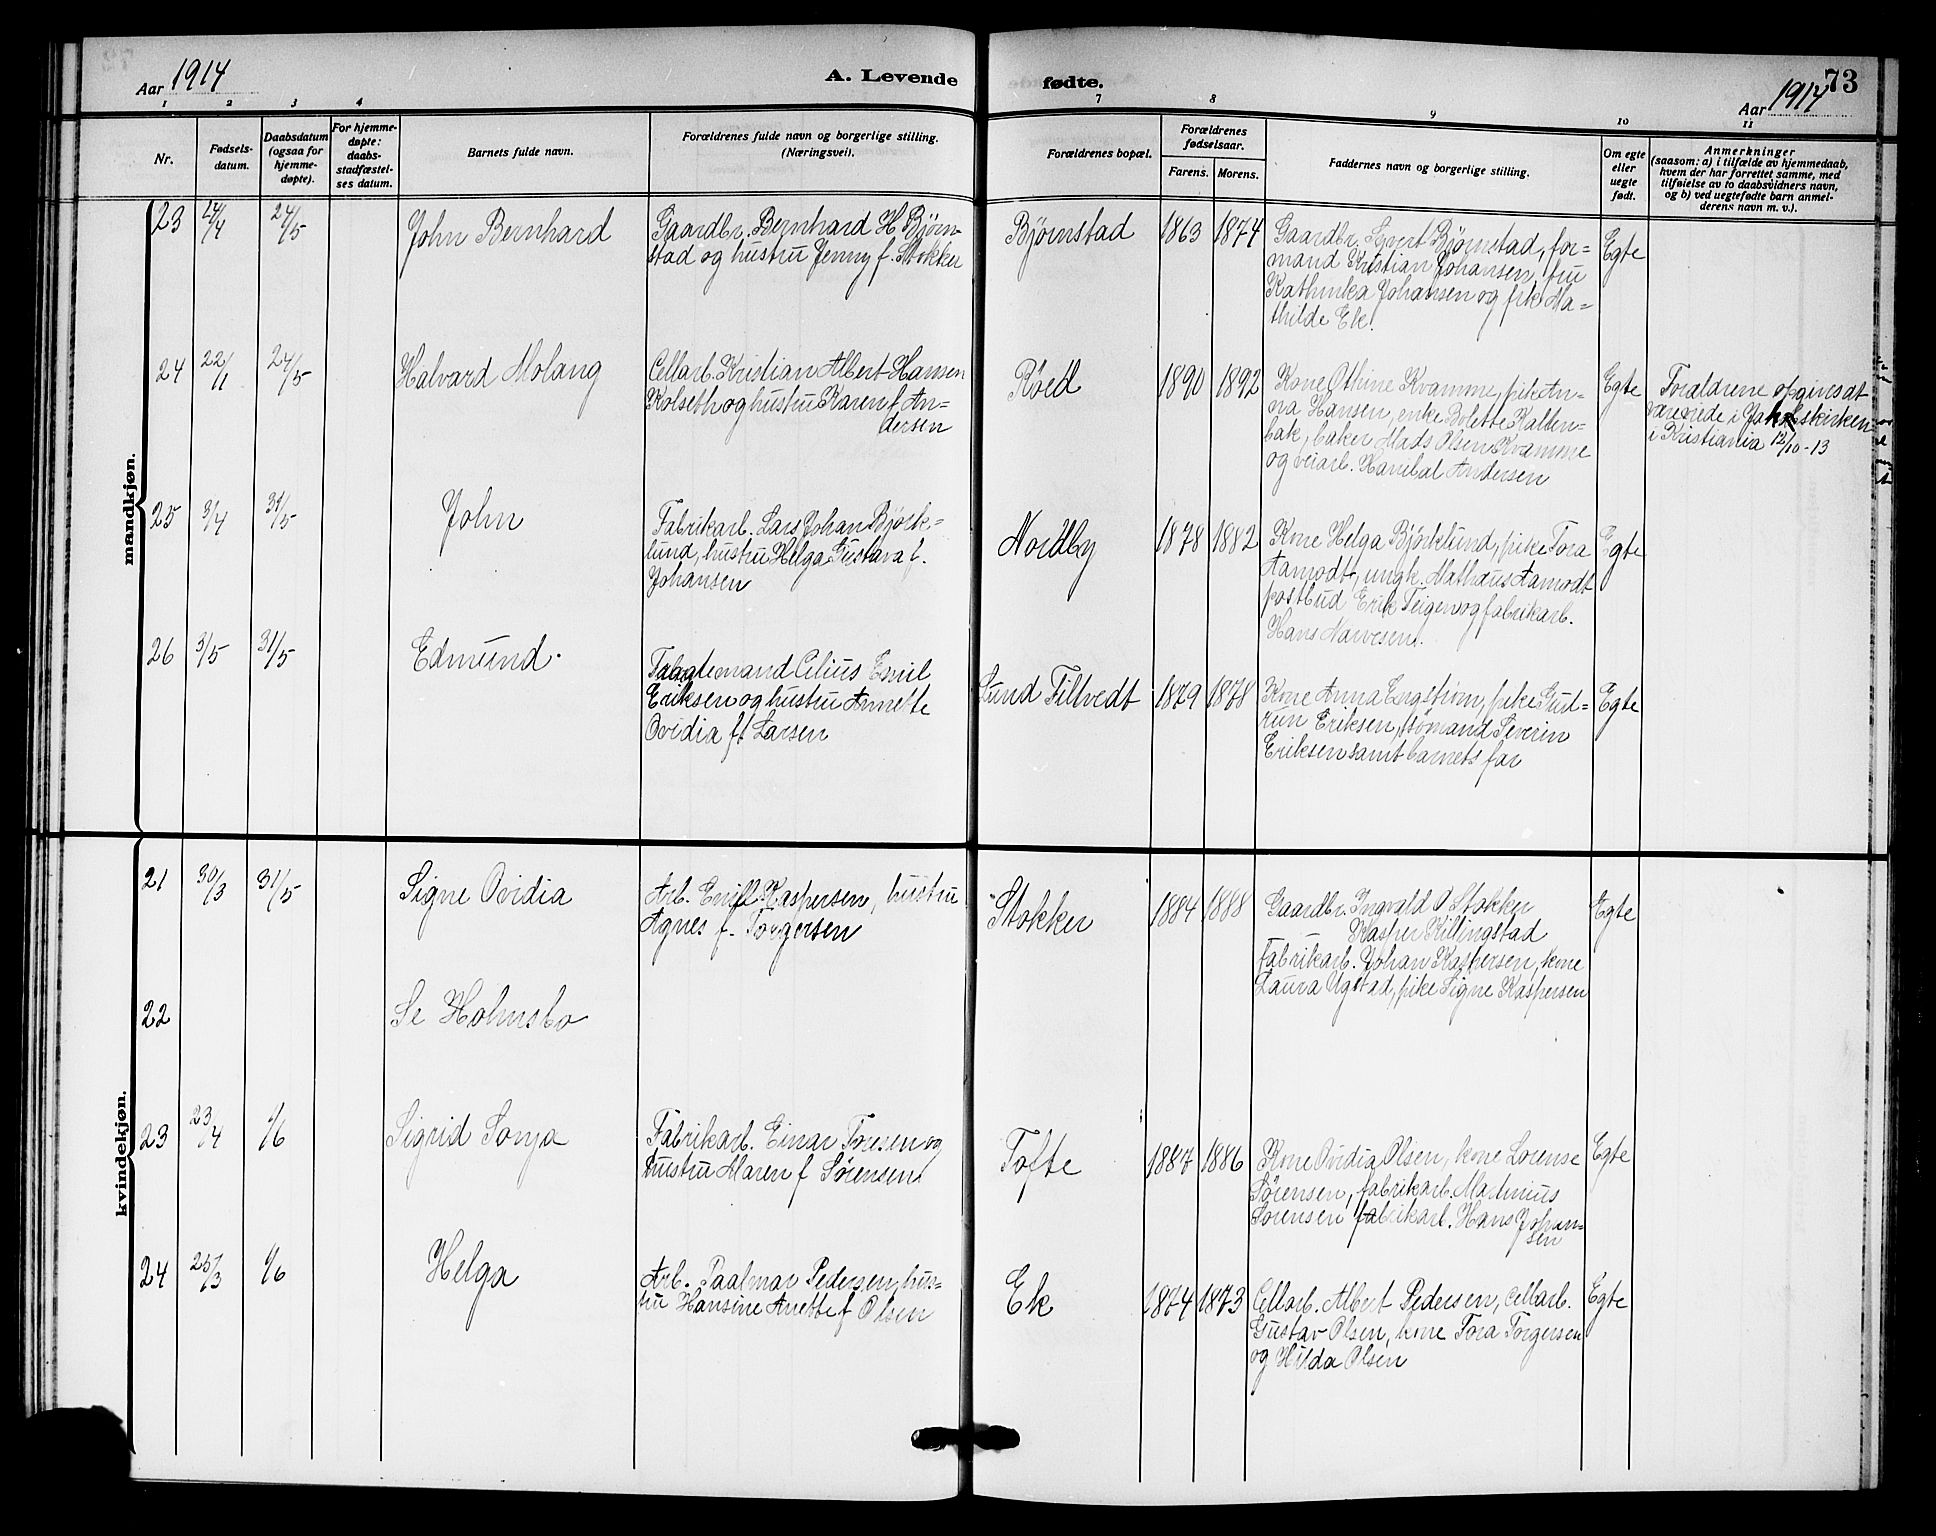 Aar 1914
A. Levende
fødte.
73
Aar 1914
1 2 3 4 7 8 9 10 11
Nr.
Fødsels-
datum.
Daabsdatum
(ogsaa for
hjemme-
døpte).
For hjemme-
døpte:
daabs-
stadfæstel-
ses datum.
Barnets fulde navn.
Forældrenes fulde navn og borgerlige stilling.
(Næringsvei).
Forældrenes bopæl.
Forældrenes
fødselsaar.
Farens. Morens.
Faddernes navn og borgerlige stilling.
Om egte
eller
uegte
født.
Anmerkninger
(saasom: a) i tilfælde av hjemmedaab,
hvem der har forrettet samme, med
tilføielse av to daabsvidners navn,
og b) ved uegtefødte barn anmel-
derens navn m. v.).
mandkjøn.
23 24/5 John Bernhard
Gaardbr. Bernhard H Bjørn-
stad og hustru Jenny f. Stokker
Bjørnstad 1863 1874
Gaardbr. Sivert Bjørnstad, for=
mand Kristian Johansen, fru
Kathinka Johansen og pike Ma=
thilde Ek.
Egte
24 22/11 24/5 Halvard Molang
Cellarb. Kristian Albert Hansen
Kolseth og hustru Karen f. An=
dersen
Røed 1890 1892
Kone Othine Kvamme, pike An-
na Hansen, enke Bolette Kallen-
bak, baker Mads Olsen Kvamme
og veiarb. Hanibal Andersen
Egte
Foraldrene opgives at
være viede i Jakobskirken
i Kristiania 12/10-13
25 3/4 31/5 John
Fabrikarb. Lars Johan Bjørk=
lund, hustru Helga Gustava f.
Johansen
Nordby 1878 1882
Kone Helga Bjørklund, pike Tora
Aamodt, ungk. Mathæus Aamodt
postbud Erik Teigen og fabrikarb.
Hans Narvesen.
Egte
26 3/5 31/5 Edmund.
Celius Emil
Eriksen og hustru Annette
Ovidia f. Larsen
Lund Tiltvedt 1879 1878
Kone Anna Engstrøm, pike Gud=
run Eriksen, sømand Severin
Eriksen samt barnets far
Egte
kvindekjøn.
21 30/3 31/5 Signe Ovidia
Arb. Emil Kaspersen, hustru
Agnes f. Torgersen
Stokker 1884 1888
Gaardbr. Ingvald O Stokker
Kasper Killingstad
Fabrikarb. Johan Kaspersen, kone
Laura Ugstad, pike Signe Kaspersen
Egte
22 Se Holmsbo
23 23/4 1/6 Sigrid Sonja
Fabrikarb. Einar Toresen og
hustru Maren f Sørensen
Tofte 1887 1886
Kone Ovidia Olsen, kone Lorense
Sørensen, fabrikarb. Martinius
Sørensen fabrikarb. Hans Johan-
sen
Egte
24 25/3 1/6 Helga
Arb. Paalmar Pedersen, hus=
tru Hansine Anette f Olsen
Ek 1874 1873
Cellarb. Albert Pedersen, Cellarb.
Gustav Olsen, kone Tora Torgersen
og Hilda Olsen
Egte